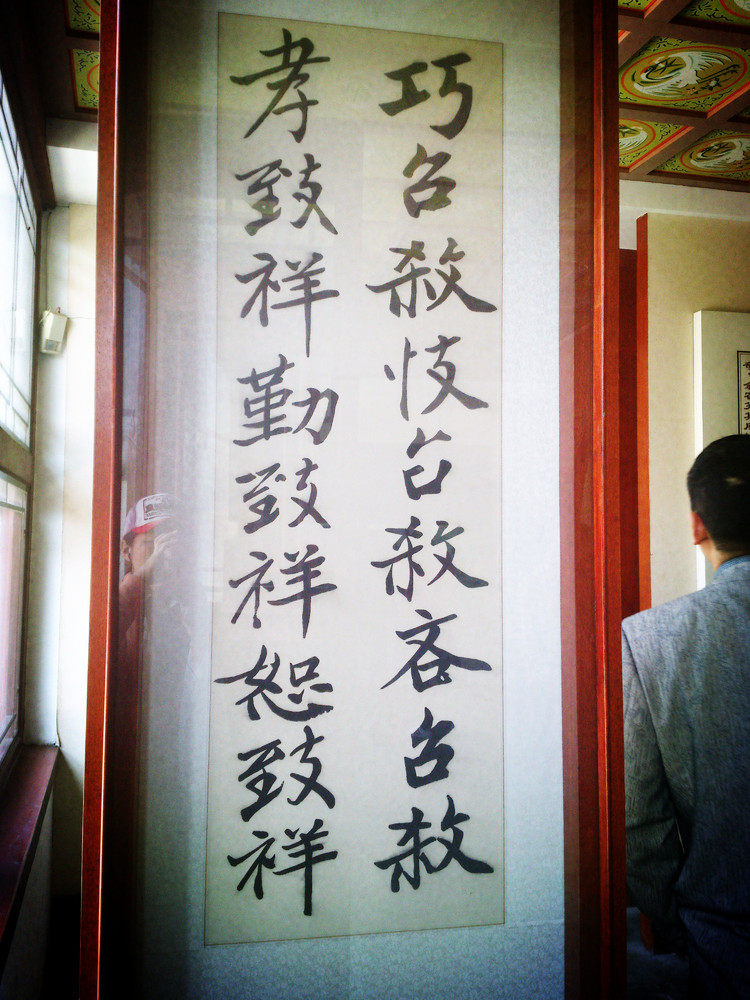 巧召殺忮召殺吝召殺
孝致祥勤致祥恕致祥